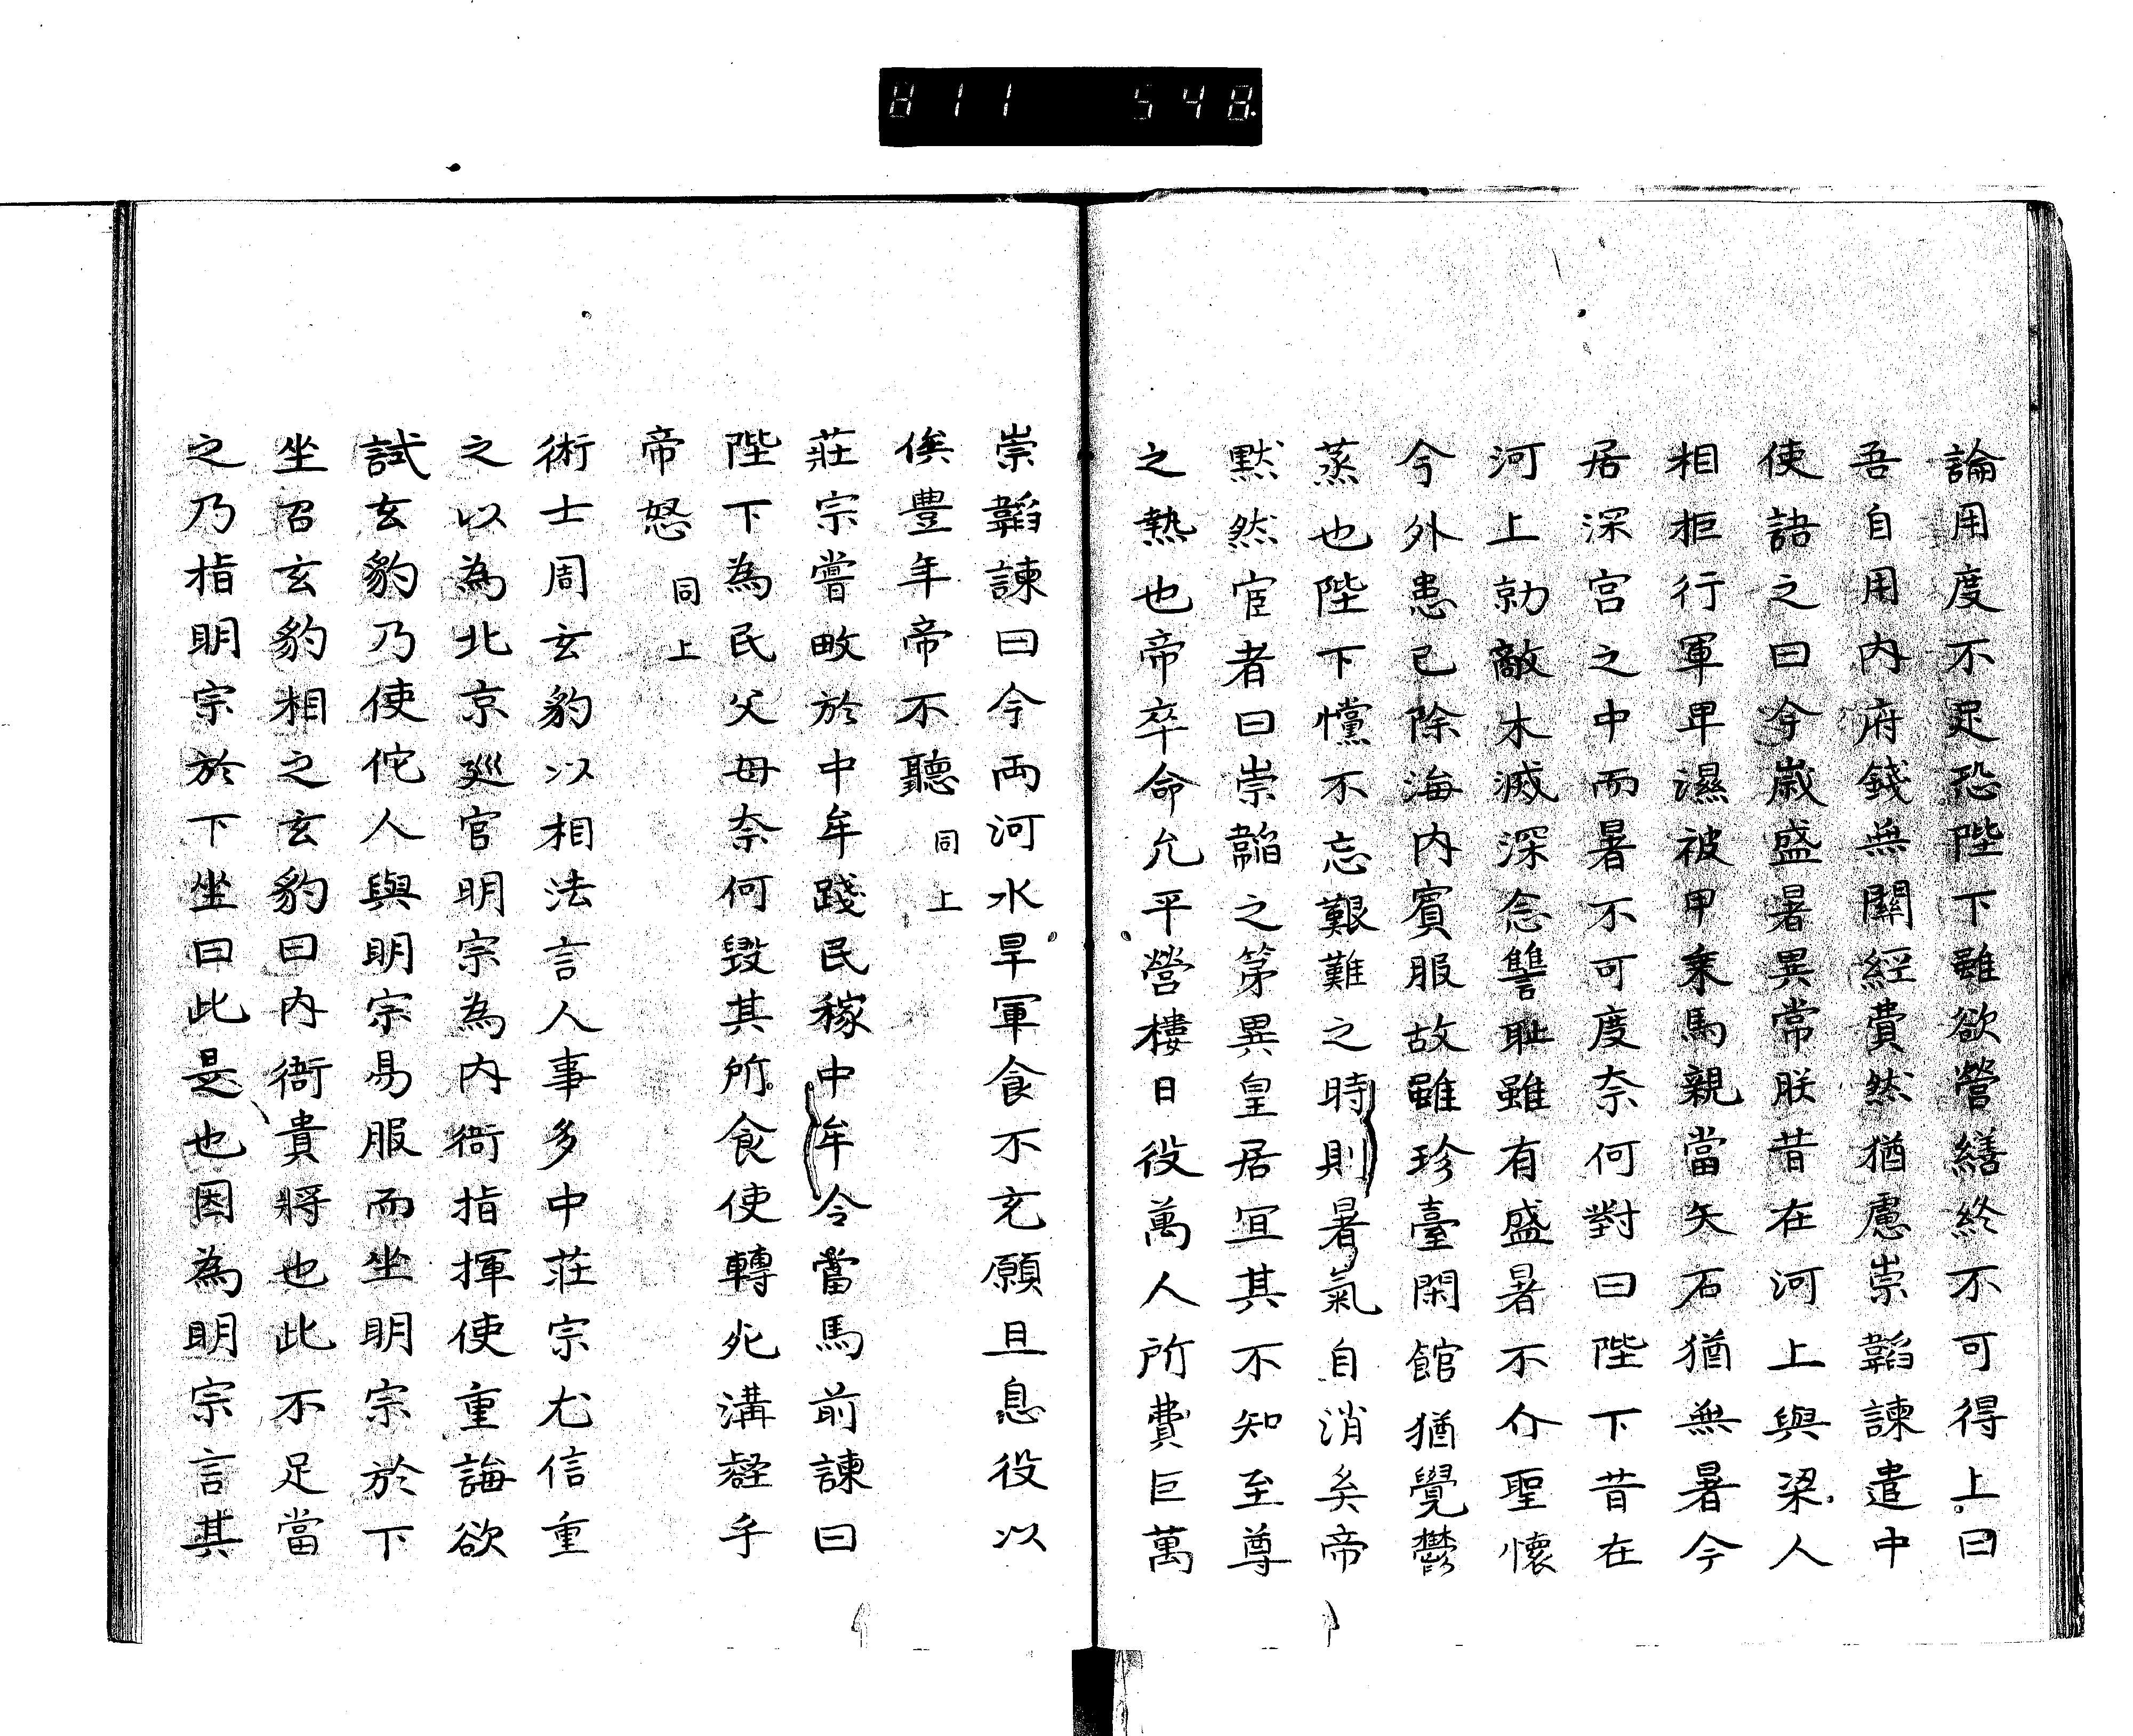 811 548.
論用度不足恐陛下雖欲營繕終不可得上曰
吾自用內府錢無關經費然猶慮崇韜諫遣中
使語之曰今歲盛暑異常朕昔在河上與梁人
相拒行軍卑濕被甲乘馬親當矢石猶無暑今
居深宮之中而暑不可度奈何對曰陛下昔在
河上勍敵未滅深念讐耻雖有盛暑不介聖懷
今外患已除海內賓服故雖珍臺閑館猶覺鬱
蒸也陛下儻不忘艱難之時則暑氣自消矣帝
默然宦者曰崇韜之第異皇居宜其不知至尊
之熱也帝卒命允平營樓日役萬人所費巨萬
崇韜諫曰今両河水旱軍食不充願且息役以
俟豊年帝不聽 同上
莊宗嘗畋於中牟踐民稼中牟令當馬前諫曰
陛下為民父母奈何毀其所食使轉死溝壑乎
帝怒 同上
術士周玄豹以相法言人事多中莊宗尤信重
之以為北京巡官明宗為內衙指揮使重誨欲
試玄豹乃使佗人與明宗易服而坐明宗於下
坐召玄豹相之玄豹曰內衙貴將也此不足當
之乃指明宗於下坐曰此是也因為明宗言其